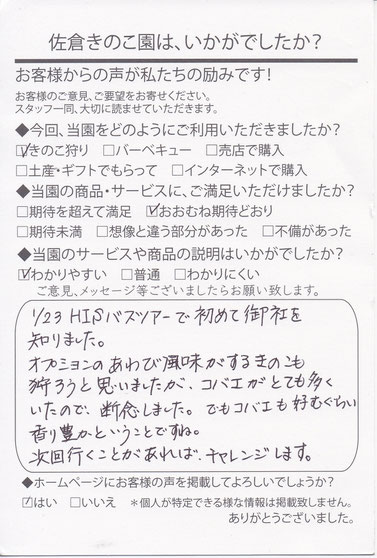 佐倉きのこ園は、いかがでしたか?
お客様からの声が私たちの励みです!
お客様のご意見、ご要望をお寄せください。
スタッフ一同、大切に読ませていただきます。
◆今回、当園をどのようにご利用いただきましたか?
☑きのこ狩り □バーベキュー □売店で購入
□土産・ギフトでもらって □インターネットで購入
◆当園の商品・サービスに、ご満足いただけましたか?
□期待を超えて満足 ☑おおむね期待どおり
□期待未満 □想像と違う部分があった □不備があった
◆当園のサービスや商品の説明はいかがでしたか?
☑わかりやすい □普通 □わかりにくい
ご意見、メッセージ等ございましたらお願い致します。
1/23 HISバスツアーで初めて御社を
知りました。
オプションのあわび風味がするきのこも
狩ろうと思いましたが、コバエがとても多く
いたので、断念しました。でもコバエも好むぐらい
香り豊かということですね。
次回行くことがあれば、チャレンジします。
◆ホームページにお客様の声を掲載してよろしいでしょうか?
☑はい □いいえ *個人が特定できる様な情報は掲載致しません。
ありがとうございました。